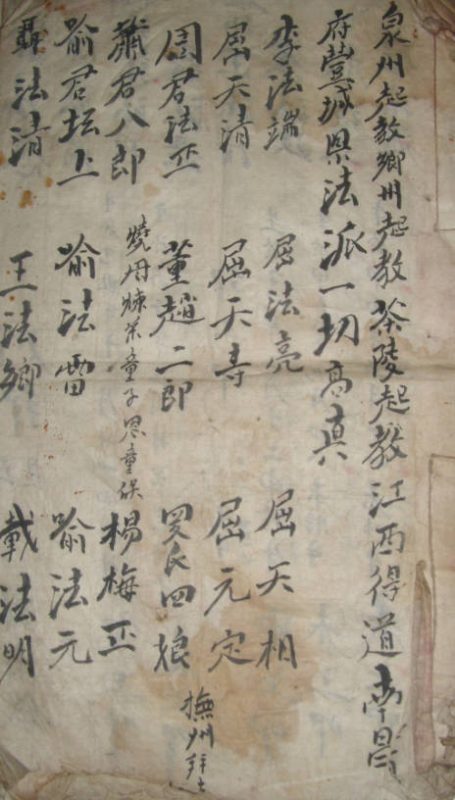 泉州起教鄉州起教茶陵起教江西得道南昌
府豐城県法派一切高真
李法端 屈法亮 屈天相
屈天清 屈天寿 屈元定
周君法正 董趙二郎 罗氏四娘 撫州
蕭君八郎 燒丹煉茶童子 楊梅正
喻君坛上 喻法雷 喻法元
聶法清 王法鄉 載法明